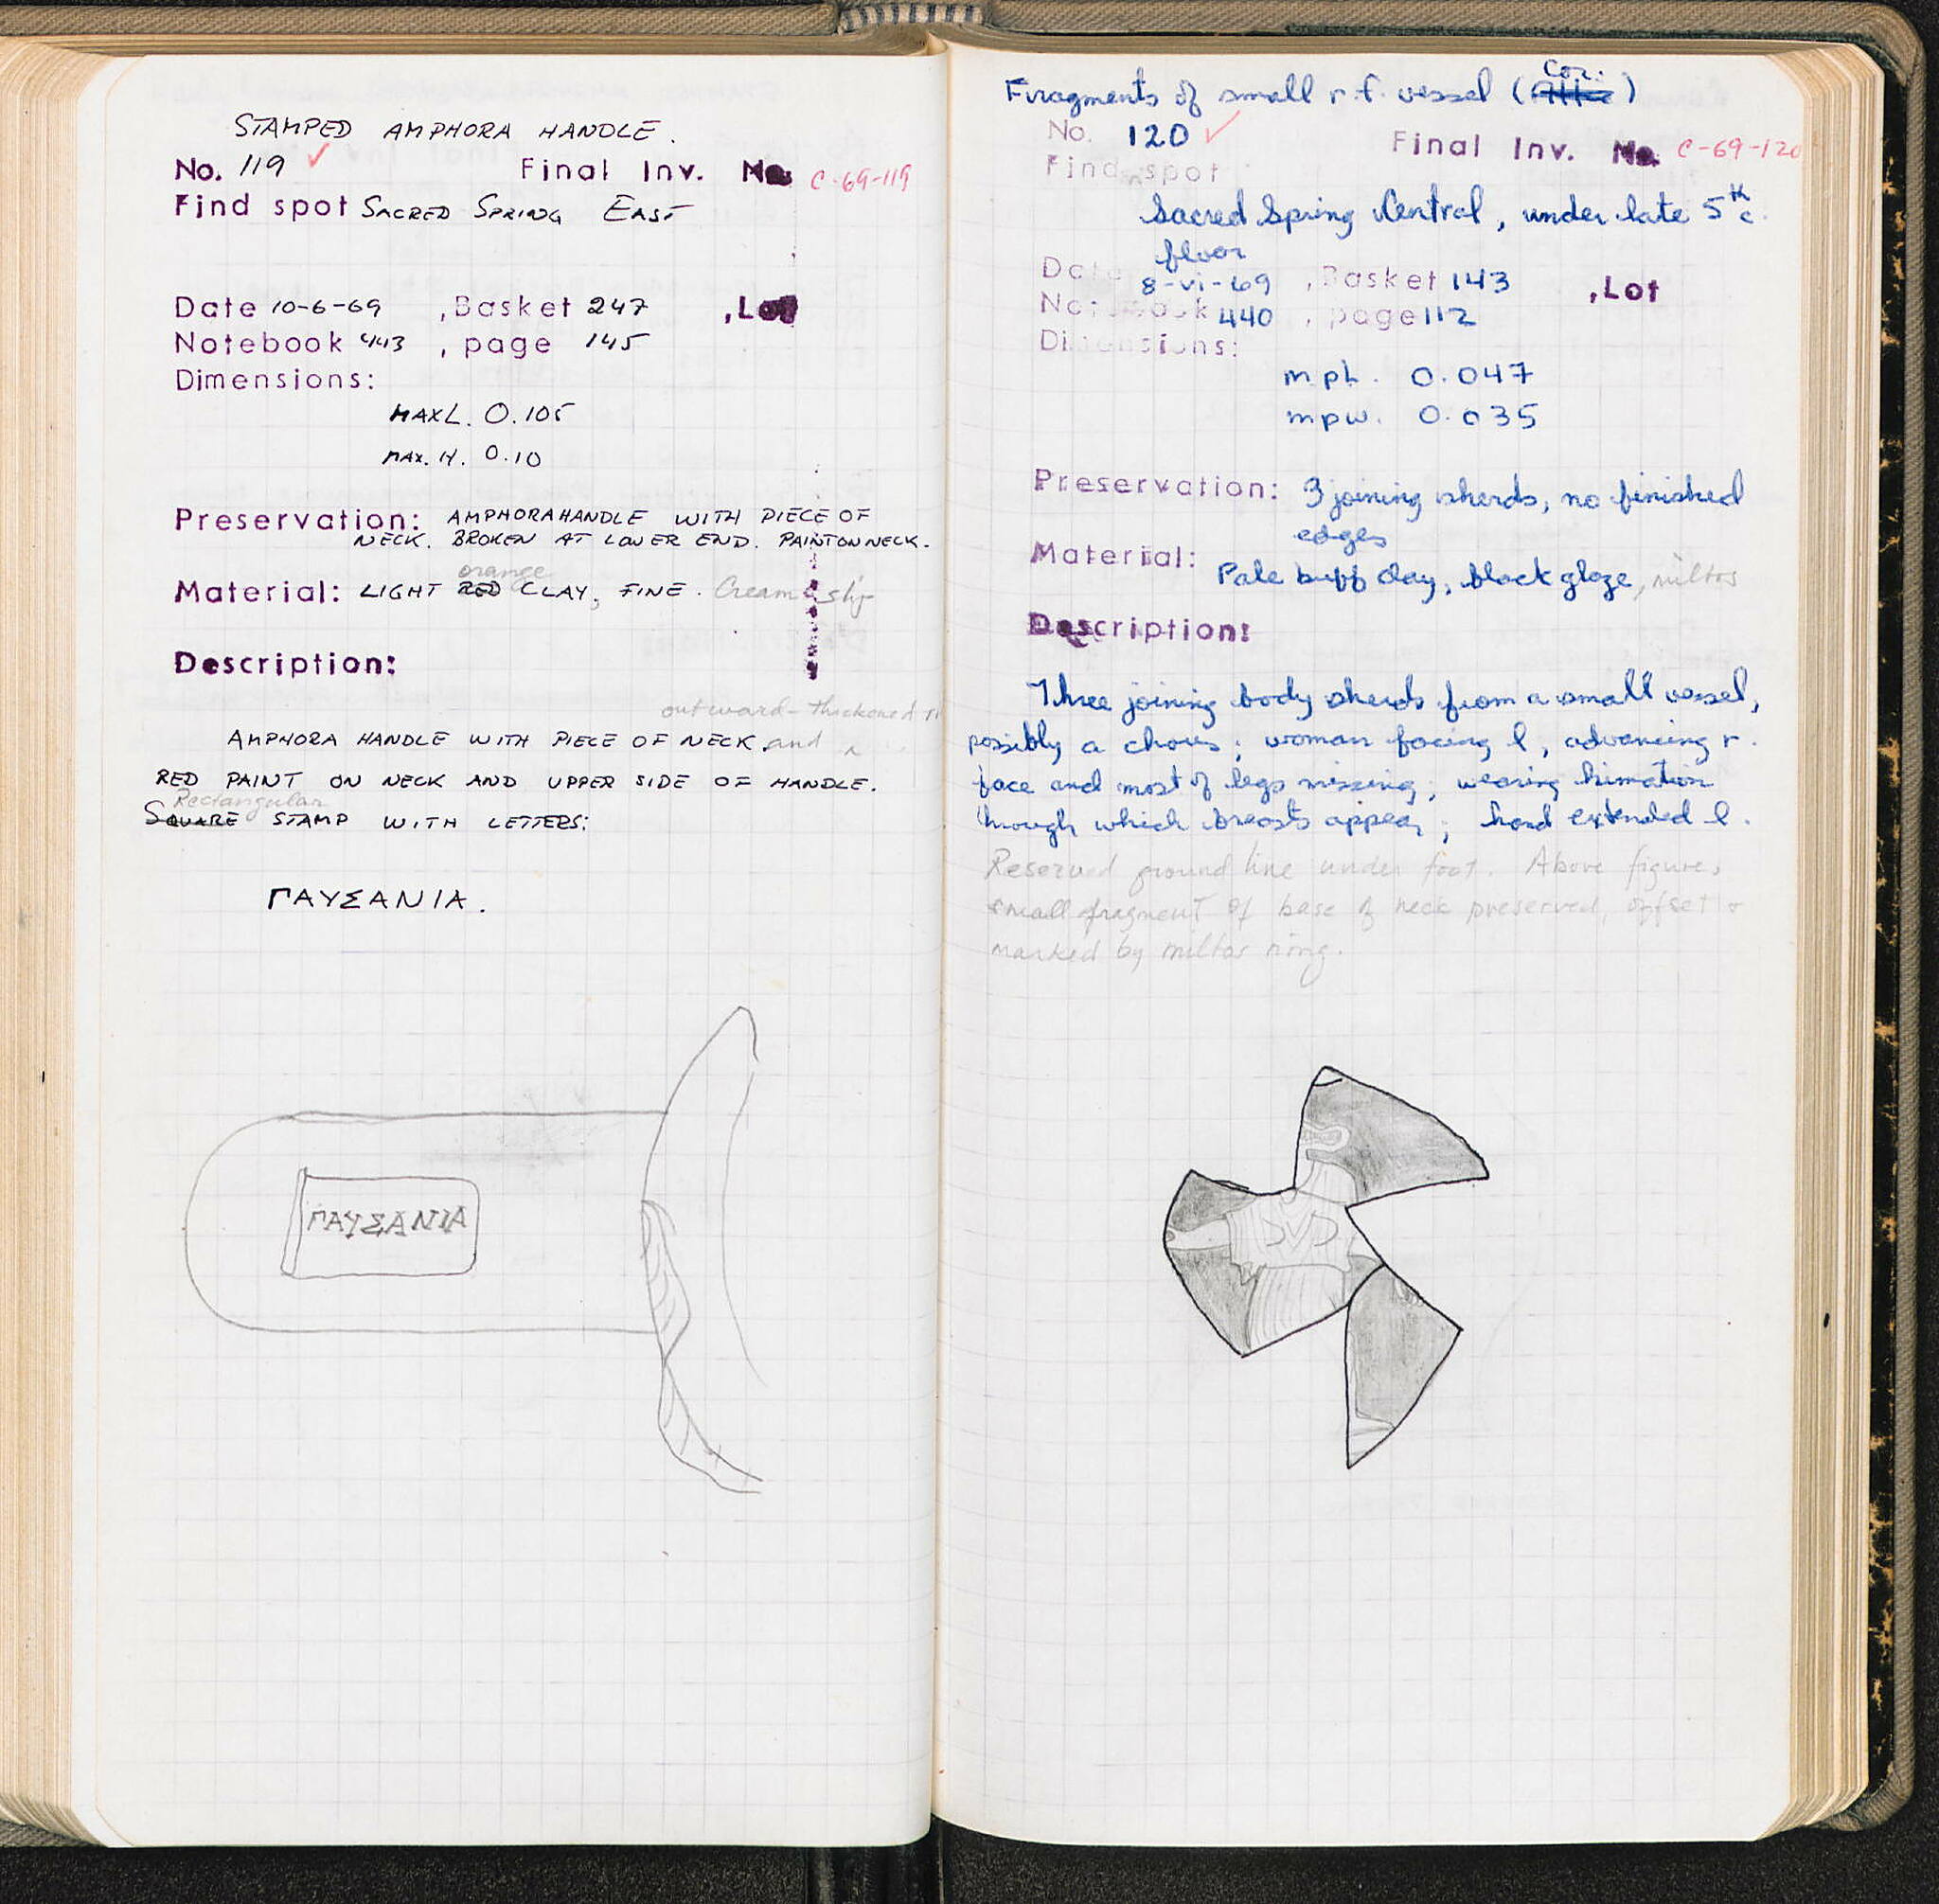 STAMPED AMPHORA HANDLE.
No. 119 ✓ Final Inv. No. C-69-119
Find spot SACRED SPRING EAST
Date 10-6-69 , Basket 247 , Lot
Notebook 443 , page 145
Dimensions:
MAX L. 0.105
MAX. H. 0.10
Preservation: AMPHORA HANDLE WITH PIECE OF
NECK. BROKEN AT LOWER END. PAINT ON NECK.
orange
Material: LIGHT RED CLAY, FINE. Cream slip
Description:
outward-thickened
AMPHORA HANDLE WITH PIECE OF NECK and
RED PAINT ON NECK AND UPPER SIDE OF HANDLE.
Rectangular
SQUARE STAMP WITH LETTERS:
ΓΑΥΣΑΝΙΑ.
ΓΑΥΣΑΝΙΑ
Cor.
Fragments of small r.f. vessel (Attic)
No. 120 ✓ Final Inv. No. C-69-120
Find spot
Sacred Spring Central, under late 5th c.
floor
Date 8-vi-69 , Basket 143 , Lot
Notebook 440 , page 112
Dimensions:
mph. 0.047
mpw. 0.035
Preservation: 3 joining sherds, no finished
edges
Material: Pale buff clay, black glaze, miltos
Description:
Three joining body sherds from a small vessel,
possibly a chous; woman facing l, advancing r.
face and most of legs missing; wearing himation
through which breasts appear; hand extended l.
Reserved ground line under foot. Above figure,
small fragment of base of neck preserved, offset &
marked by miltos ring.